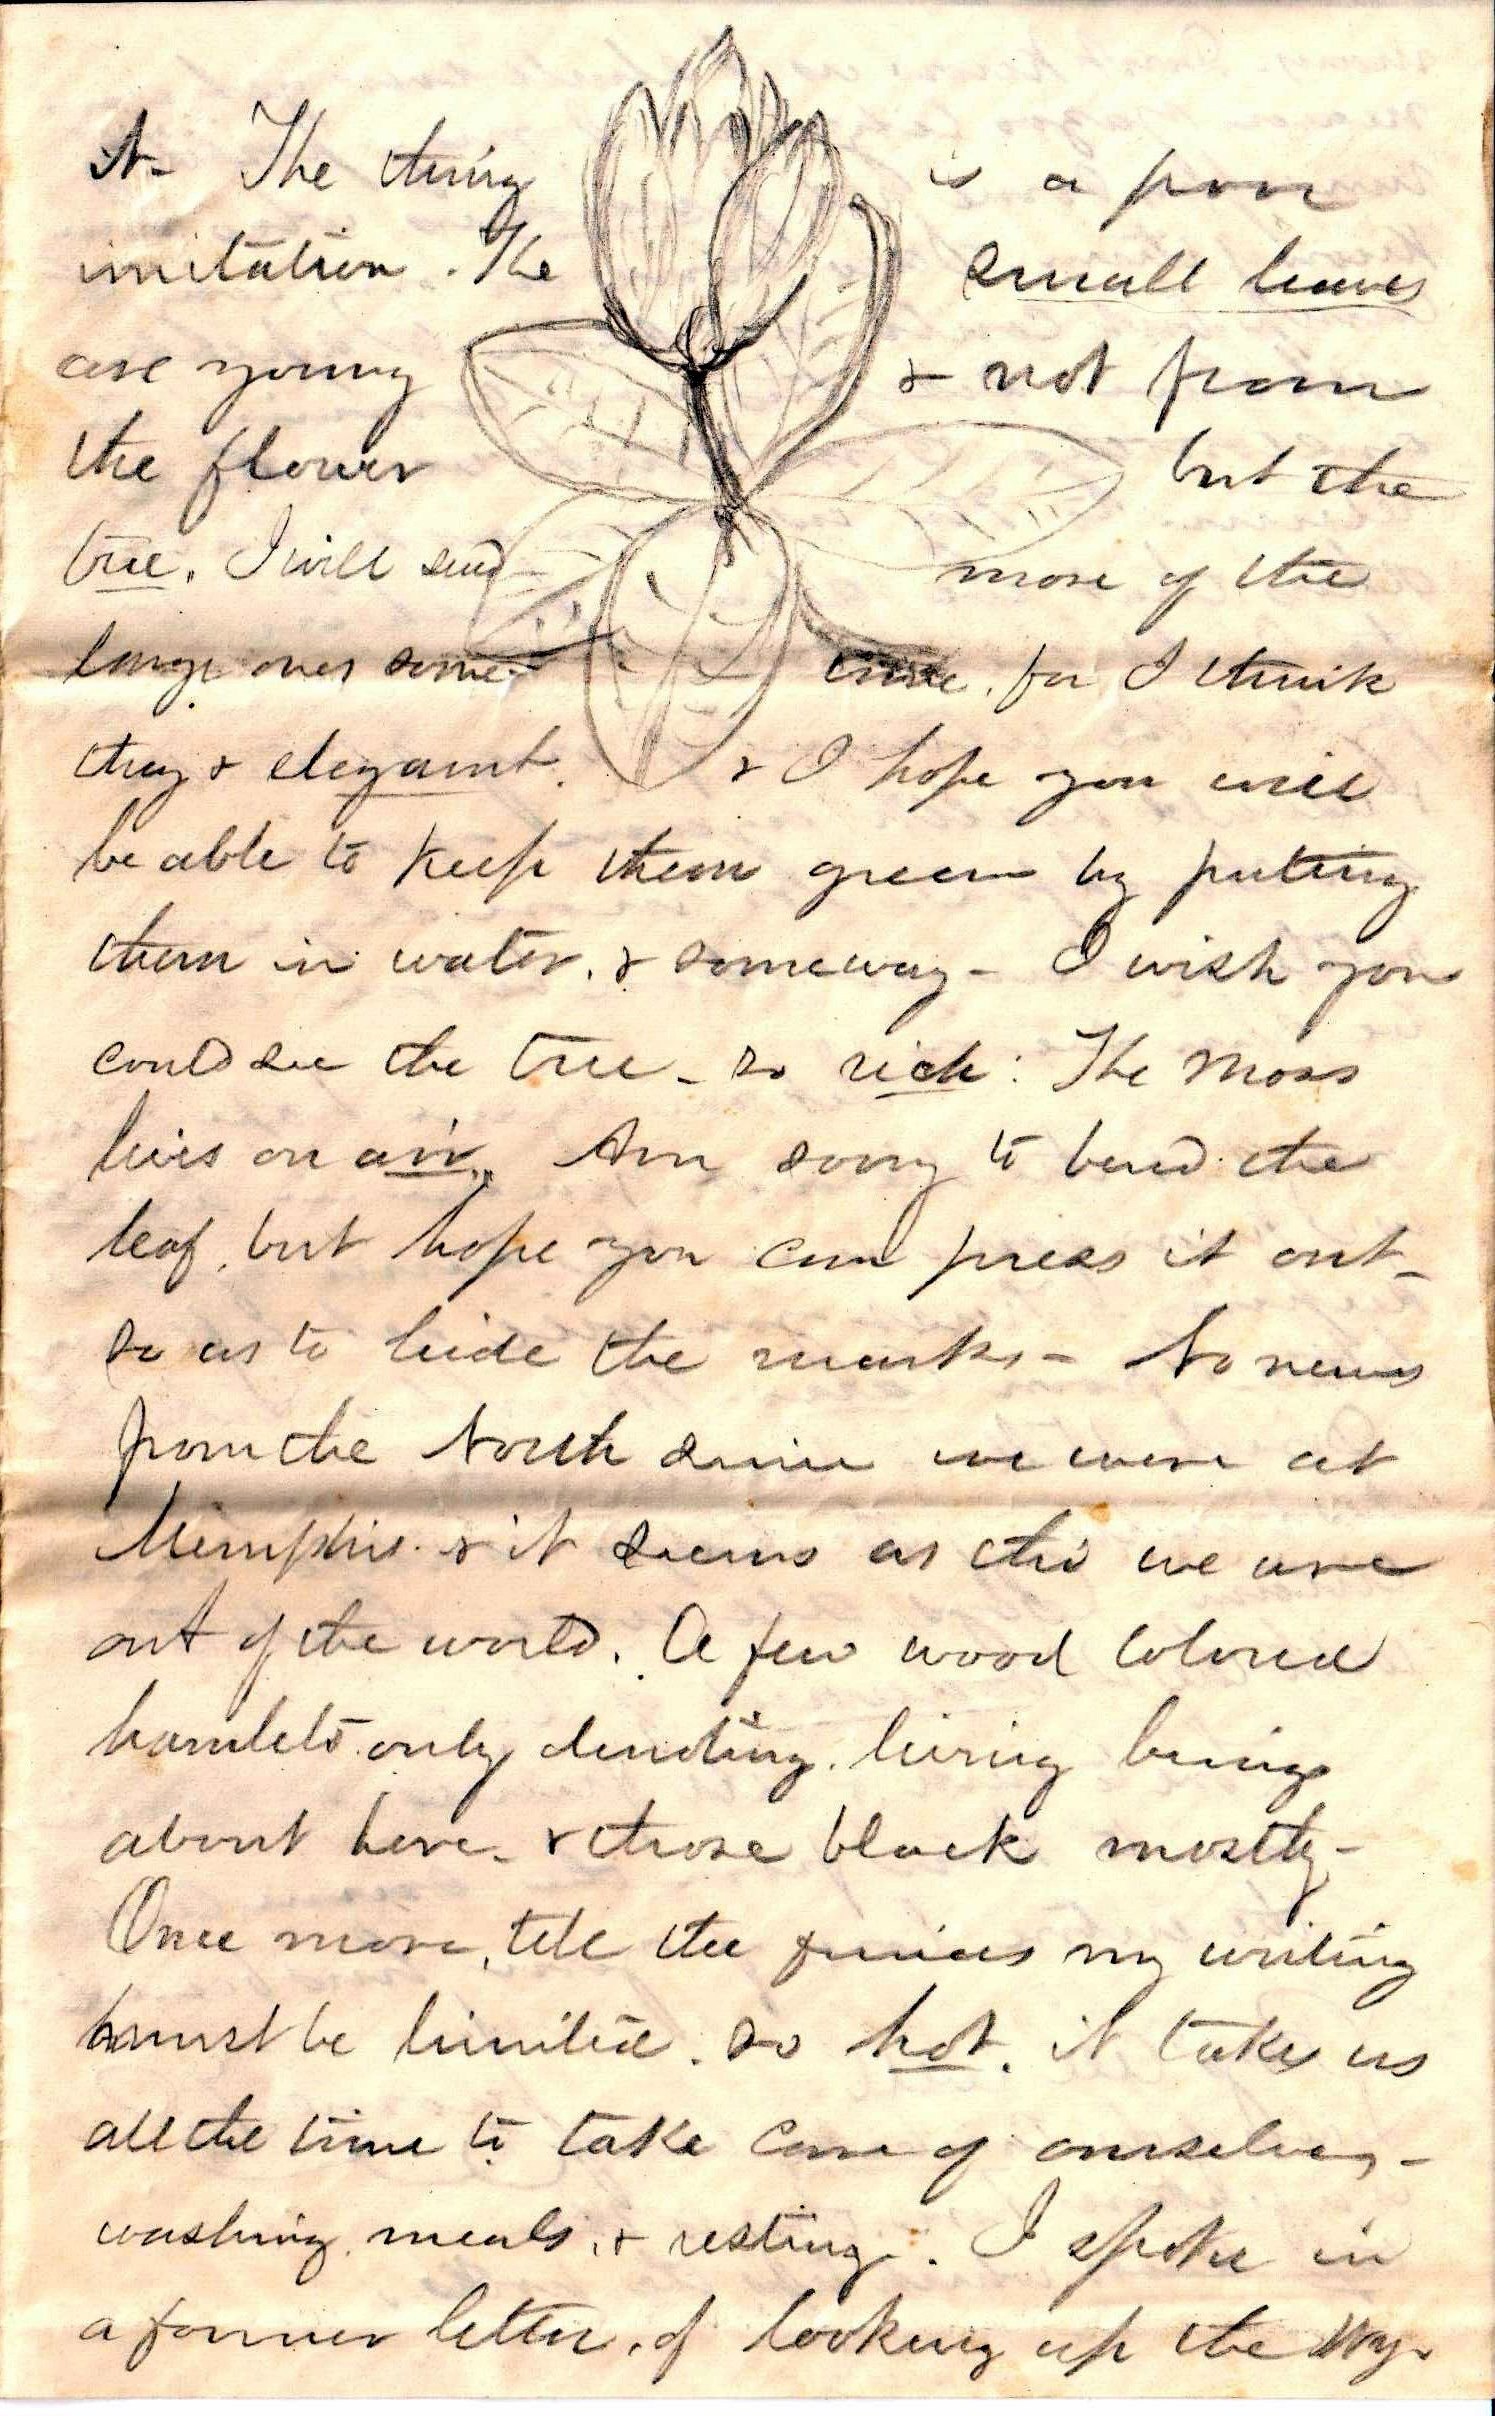 it - The thing is a poor
imitation. The small leaves
are young & not from
the flower but the
tree. I will send more of the
large ones some time, for I think
they r elegant. & I hope you will
be able to keep them green by putting
them in water, & someway - I wish you
could see the tree - so rich: The Moss
lives on air. Am sorry to bend the
leaf, but hope you can press it out -
so as to hide the marks - No news
from the North since we were at
Memphis. & it seems as tho' we are
out of the world. A few wood colored
hamlets only denoting living beings
about here - & those black mostly -
Once more, tell the my writing
must be limited. so hot. it takes us
all the time to take care of ourselves, -
washing, meals, & resting. I spoke in
a former letter, of looking up the